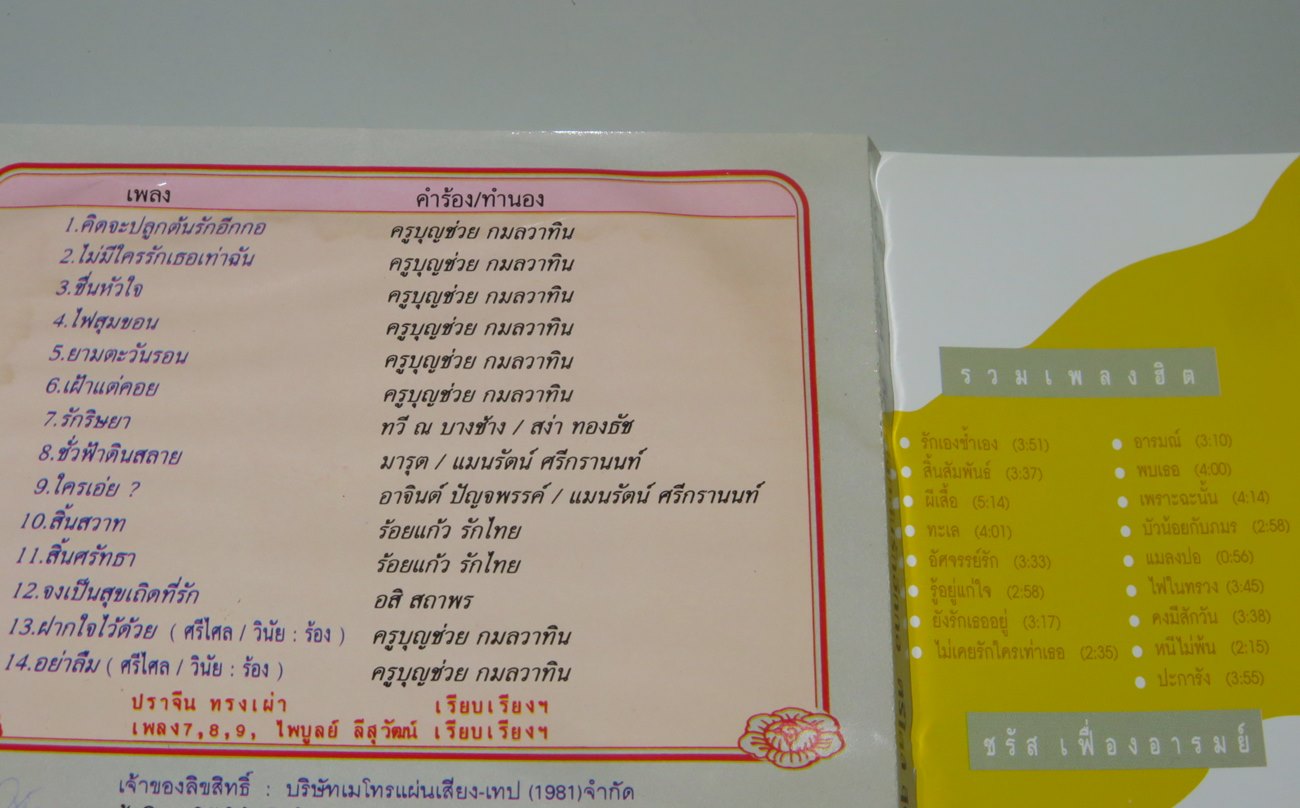 เพลง คำร้อง/ทำนอง
1.คิดจะปลูกต้นรักอีกกอ ครูบุญช่วย กมลวาทิน
2.ไม่มีใครรักเธอเท่าฉัน ครูบุญช่วย กมลวาทิน
3.ชื่นหัวใจ ครูบุญช่วย กมลวาทิน
4.ไฟสุมขอน ครูบุญช่วย กมลวาทิน
5.ยามตะวันรอน ครูบุญช่วย กมลวาทิน
6.เฝ้าแต่คอย ครูบุญช่วย กมลวาทิน
7.รักริษยา ทวี ณ บางช้าง / สง่า ทองธัช
8.ชั่วฟ้าดินสลาย มารุต / แมนรัตน์ ศรีกรานนท์
9.ใครเอ่ย ? อาจินต์ ปัญจพรรค์ / แมนรัตน์ ศรีกรานนท์
10.สิ้นสวาท ร้อยแก้ว รักไทย
11.สิ้นศรัทธา ร้อยแก้ว รักไทย
12.จงเป็นสุขเถิดที่รัก อสิ สถาพร
13.ฝากใจไว้ด้วย ( ศรีไศล / วินัย : ร้อง ) ครูบุญช่วย กมลวาทิน
14.อย่าลืม ( ศรีไศล / วินัย : ร้อง ) ครูบุญช่วย กมลวาทิน
ปราจีน ทรงเผ่า เรียบเรียงฯ
เพลง7,8,9, ไพบูลย์ ลีสุวัฒน์ เรียบเรียงฯ
เจ้าของลิขสิทธิ์ : บริษัทเมโทรแผ่นเสียง-เทป (1981)จำกัด
รวมเพลงฮิต
รักเองช้ำเอง (3:51)
สิ้นสัมพันธ์ (3:37)
ผีเสื้อ (5:14)
ทะเล (4:01)
อัศจรรย์รัก (3:33)
รู้อยู่แก่ใจ (2:58)
ยังรักเธออยู่ (3:17)
ไม่เคยรักใครเท่าเธอ (2:35)
อารมณ์ (3:10)
พบเธอ (4:00)
เพราะฉะนั้น (4:14)
บัวน้อยกับภมร (2:58)
แมลงปอ (0:56)
ไฟในทรวง (3:45)
คงมีสักวัน (3:38)
หนีไม่พ้น (2:15)
ปะการัง (3:55)
ชรัส เฟื่องอารมย์